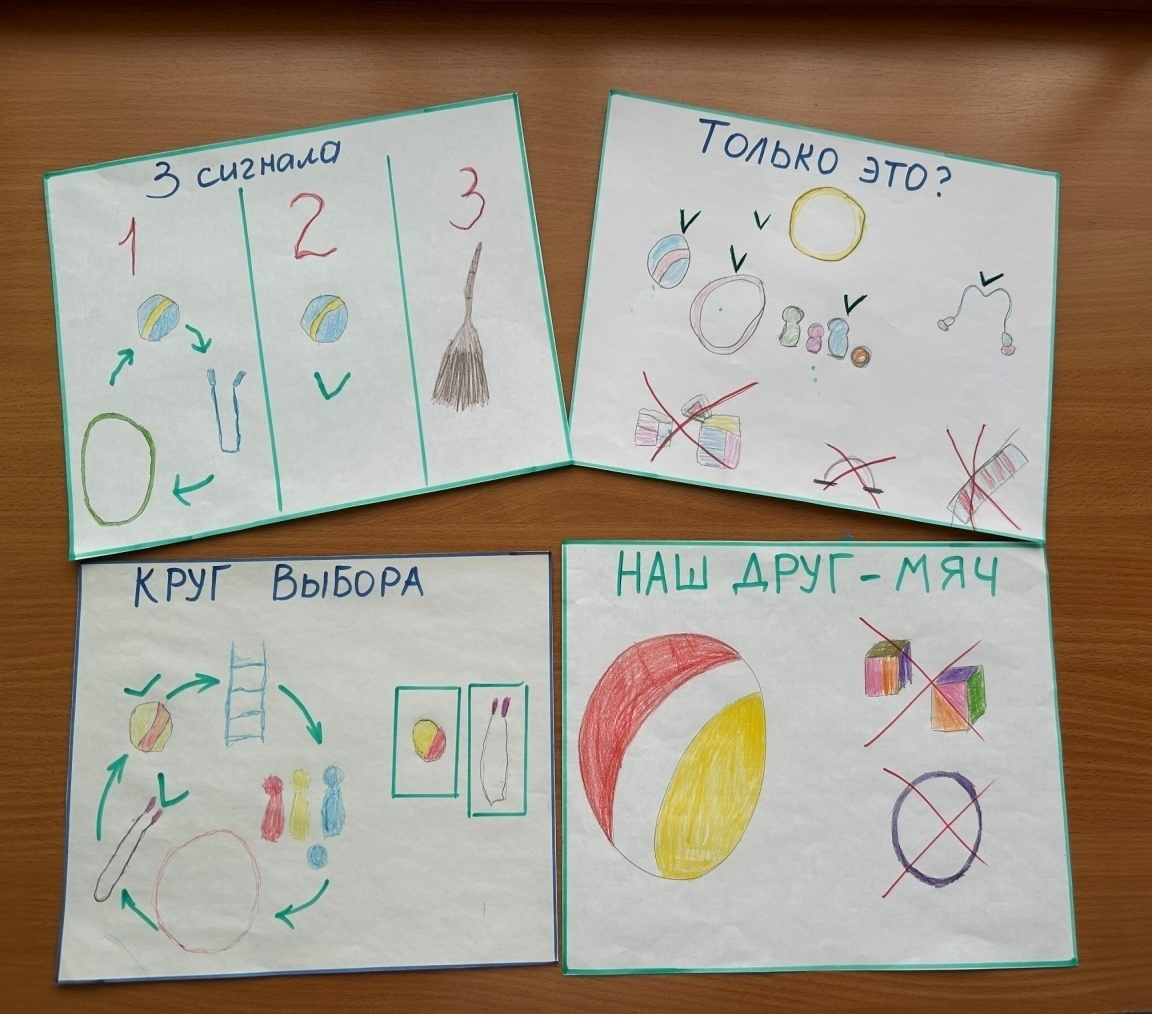 3 сигнала
1
2
3
Только это?
КРУГ ВЫБОРА
НАШ ДРУГ-МЯЧ